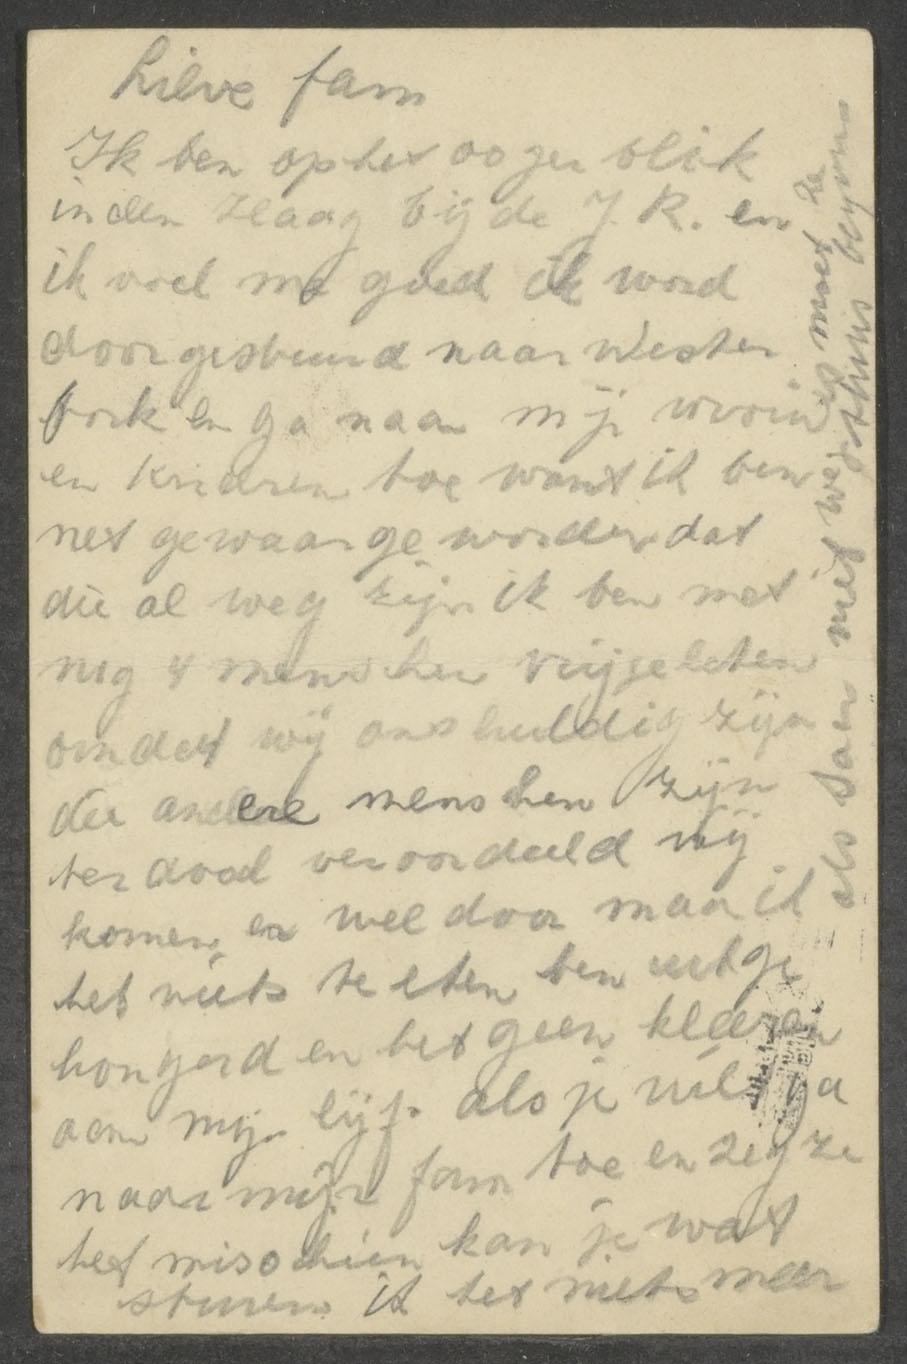 Lieve fam
Ik ben ophet oogen blik
in den Haag bij de J. R. en
ik voel me goed ik word
doorgestuurd naar Wester
bork en ga naar mijn vrouw
en kinderen toe want ik ben
net gewaar geworden dat
die al weg zijn ik ben met
nog 4 menschen vrijgelaten
omdat wij onschuldig zijn
die andere menschen zijn
ter dood veroordeeld wij
komen er wel door maar ik
heb niets te eten ben uitge
hongerd en heb geen kleeren
aan mijn lijf. als je wilt ga
naar mijn fam toe en zeg ze
het misschien kan je wat
sturen ik heb niets meer
als van niet we moet ze
thuis